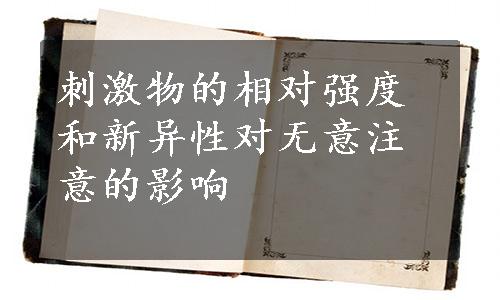 刺激物的相对强度
和新异性对无意注
意的影响